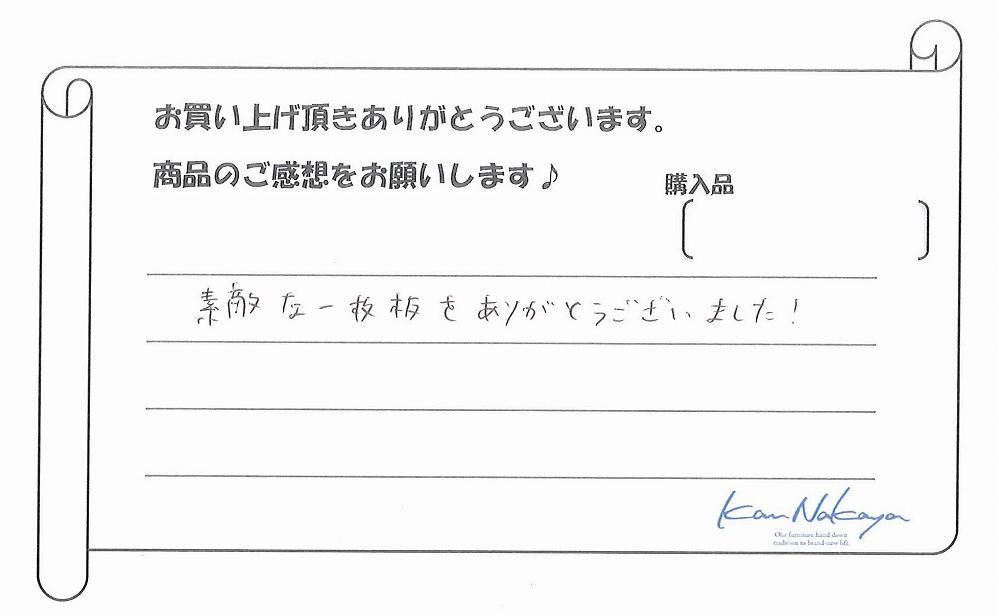 お買い上げ頂きありがとうございます。
商品のご感想をお願いします♪
購入品
素敵な一枚板をありがとうございました！
KanNakaya
Our furniture hand down
tradition to brand-new life.